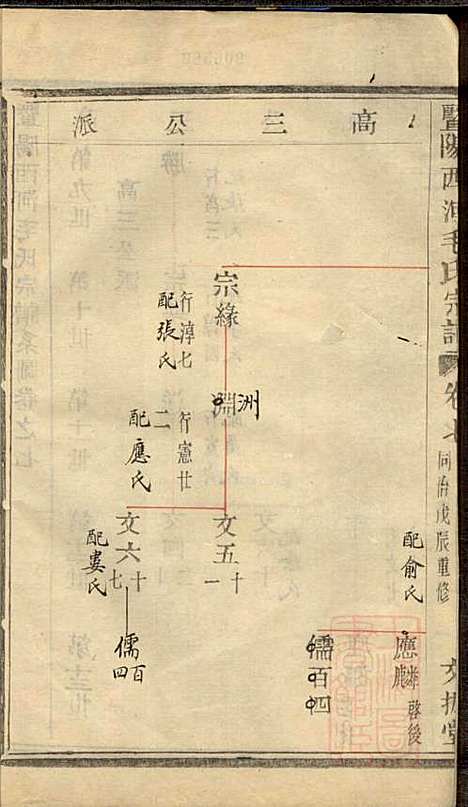 高三公派
暨陽西河毛氏宗譜
卷七
同治戊辰重修
文掞堂
配俞氏
應麟
啓後
儒百四
宗緣
行淳七
配張氏
淵
洲
行憲廿二
配應氏
文五
十一
文六
十七
配婁氏
儒百四